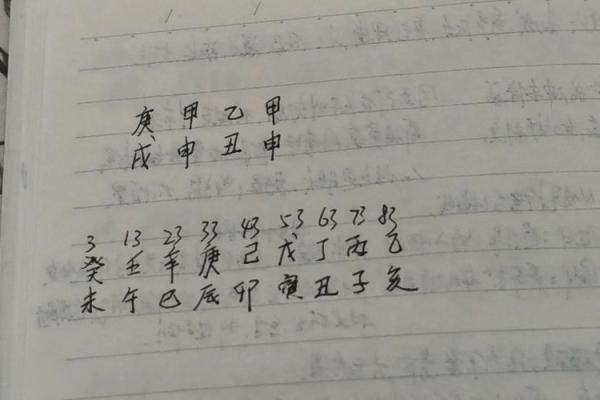 庚 甲 乙 甲
戌 申 丑 申
3 13 23 33 43 53 63 73 83
癸 壬 辛 庚 己 戊 丁 丙 乙
未 午 巳 辰 卯 寅 丑 子 亥